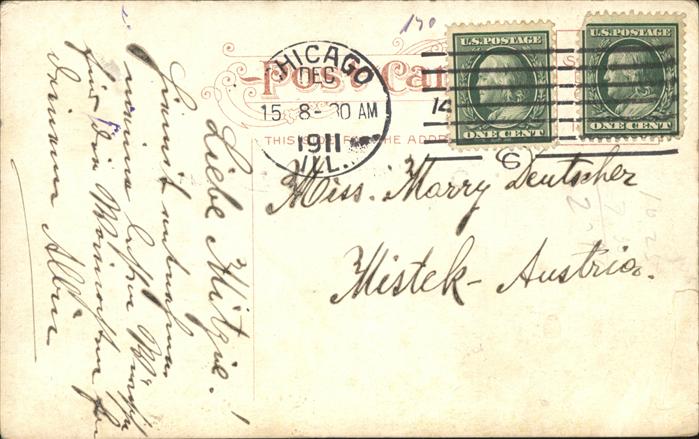 190
U.S. POSTAGE
ONE CENT
U.S. POSTAGE
ONE CENT
Post Car
CHICAGO
DEC
15 8-30 AM
1911
ILL.
14
6
THIS SIDE FOR THE ADDRE
Miss. Marry Deutscher
Mistek - Austria.
Liebe Mitzie!
Hiermit
meine besten
für die Weihnachten
Deinem Albin